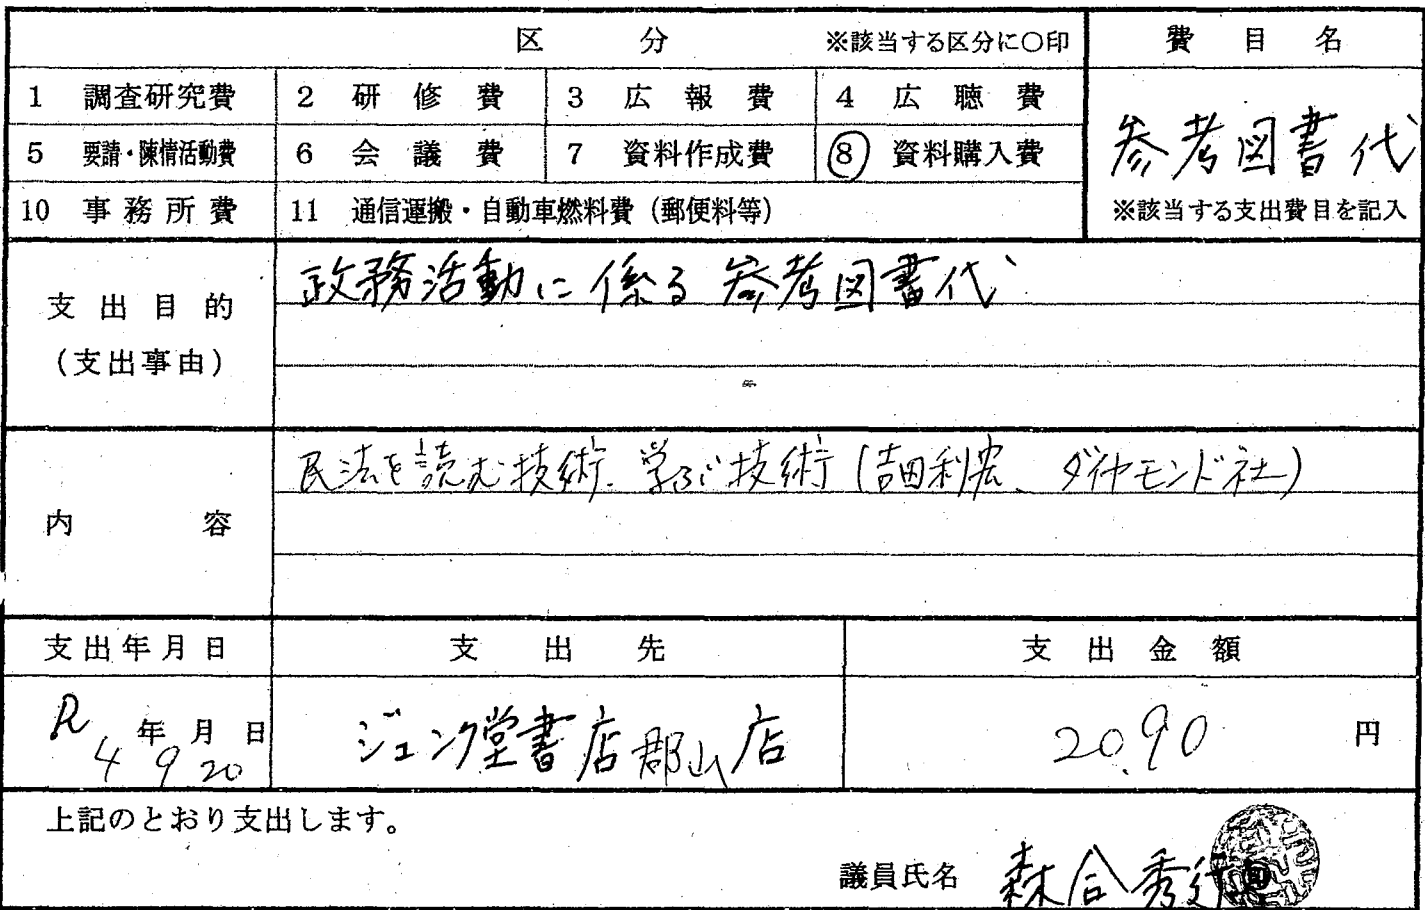 区 分 ※該当する区分に○印 費 目 名
1 調査研究費 2 研 修 費 3 広 報 費 4 広 聴 費
参考図書代
5 要請・陳情活動費 6 会 議 費 7 資料作成費 8 資料購入費
10 事務所費 11 通信運搬・自動車燃料費(郵便料等) ※該当する支出費目を記入
支出目的
(支出事由)
政務活動に係る参考図書代
内 容
民法を読む技術、学ぶ技術(吉田利宏、ダイヤモンド社)
支出年月日 支 出 先 支 出 金 額
R 4年 9月 20日 ジュンク堂書店郡山店 2090 円
上記のとおり支出します。
議員氏名 森合秀行 印